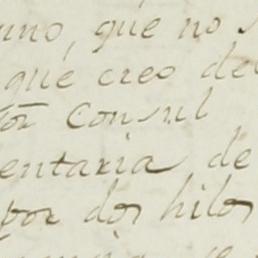 uno, que no
que creo de
tōr Consul
entaria de
por dos hilos